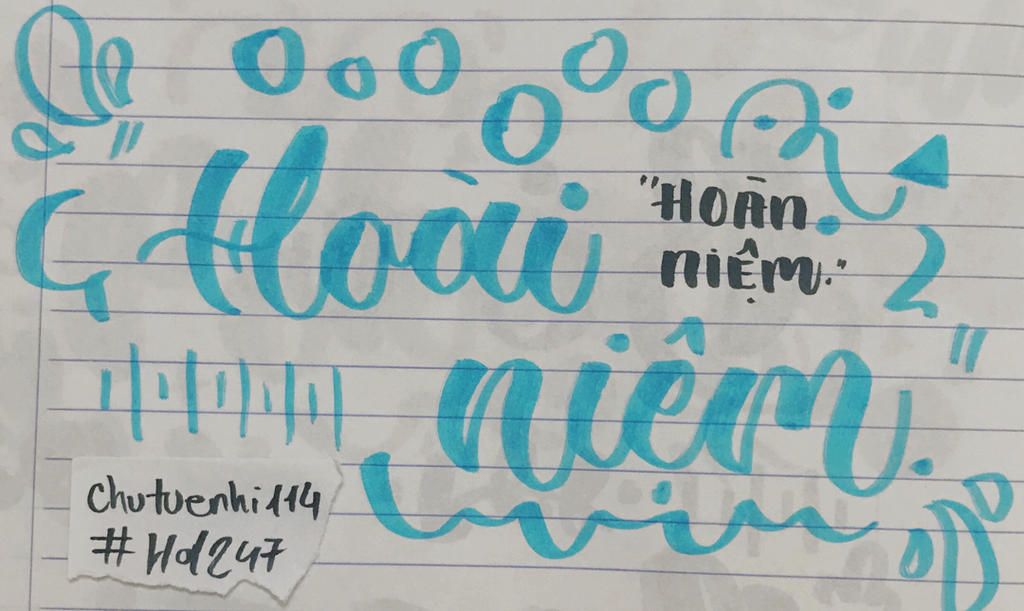 "Hoài
"HOÀN
NIỆM."
niệm."
chutuenhi114
#Hd247